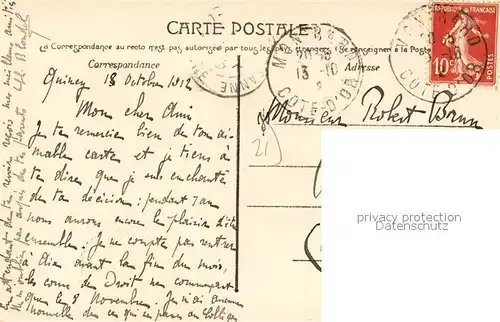 CARTE POSTALE
La Correspondance au recto n'est pas autorisée par tous les pays étrangers (Se renseigner à la Poste)
Correspondance
Adresse
Quincy 13 Octobre 1912
Mon cher Ami
Je te remercie bien de ton ai-
mable carte et je tiens à
te dire que je suis enchanté
de ta décision ; pendant 1 an
nous aurons encore le plaisir d'être
ensemble. Je ne compte pas rentrer
à Dijon avant la fin du mois,
les cours de Droit ne commençant
que le 8 Novembre. Je n'ai aucune
nouvelle de ce qui se passe au Collège
En attendant de te revoir reçois mes meilleures amitiés
Monsieur Robert Brun
21
MONTBARD
13-10
COTE-D'OR
RÉPUBLIQUE FRANÇAISE
10
POSTES
privacy protection
Datenschutz